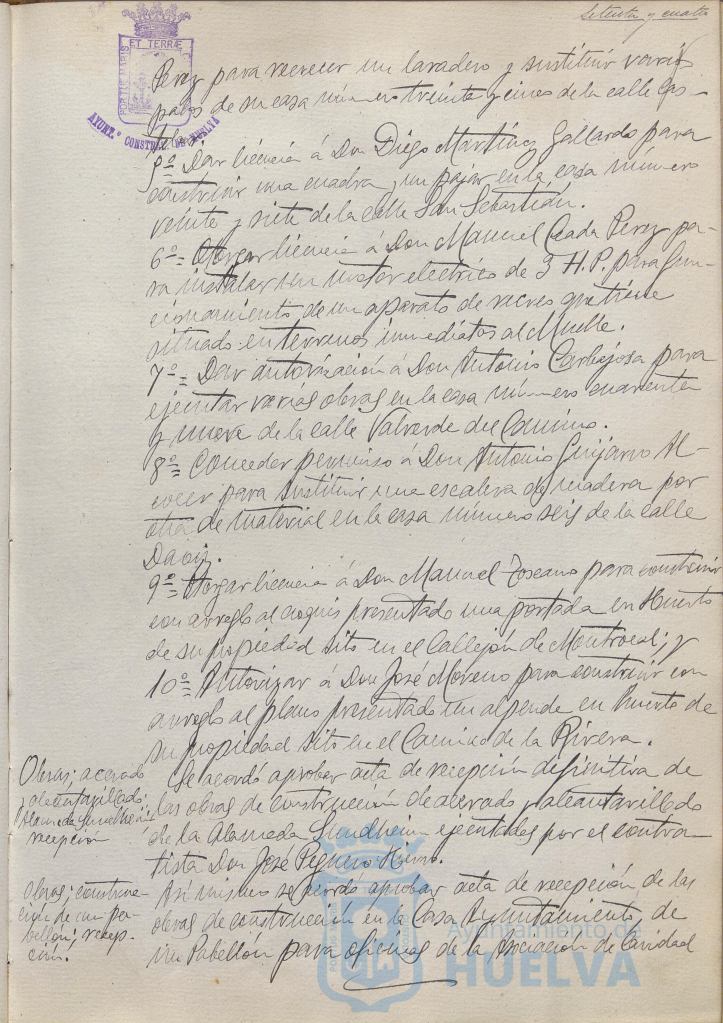 Setenta y cuatro
PORTUS MARIS ET TERRÆ C
AYUNT.º CONSTNAL DE HUELVA
Perez para recrecer un lavadero y sustituir varios
pasos de su casa número treinta y cinco de la calle Cas-
5º= Dar licencia á Don Diego Martínez Gallardo para
construir una cuadra y un pajar en la casa número
veinte y siete de la calle San Sebastián.
6º= Otorgar licencia á Don Manuel Perez pa-
ra instalar un motor eléctrico de 3 H.P. para fun-
cionamiento de un aparato de recreo que tiene
situado en terrenos inmediatos al Muelle.
7º= Dar autorización á Don Antonio Carbajosa para
ejecutar varias obras en la casa número cuarenta
y nueve de la calle Valverde del Camino.
8º= Conceder permiso á Don Antonio Guijarro Al-
cocer para sustituir una escalera de madera por
otra de material en la casa número seis de la calle
Daoiz.
9º= Otorgar licencia á Don Manuel Toscano para construir
con arreglo al croquis presentado una portada en Huerto
de su propiedad sito en el Callejón de Montrocal; y
10º= Autorizar á Don José Moreno para construir con
arreglo al plano presentado un alpende en Huerto de
su propiedad sito en el Camino de la Rivera.
Obras; acerado
y alcantarillado;
Alameda Sundheim;
recepción
Se acordó aprobar acta de recepción definitiva de
las obras de construcción de acerado y alcantarillado
de la Alameda Sundheim ejecutadas por el contra-
tista Don José Peguero
Obras; construc-
ción de un pa-
bellón; recep-
ción.
Así mismo se acordó aprobar acta de recepción de las
obras de construcción en la Casa Ayuntamiento, de
un Pabellón para oficinas de la Asociación de Caridad
Ayuntamiento de
HUELVA